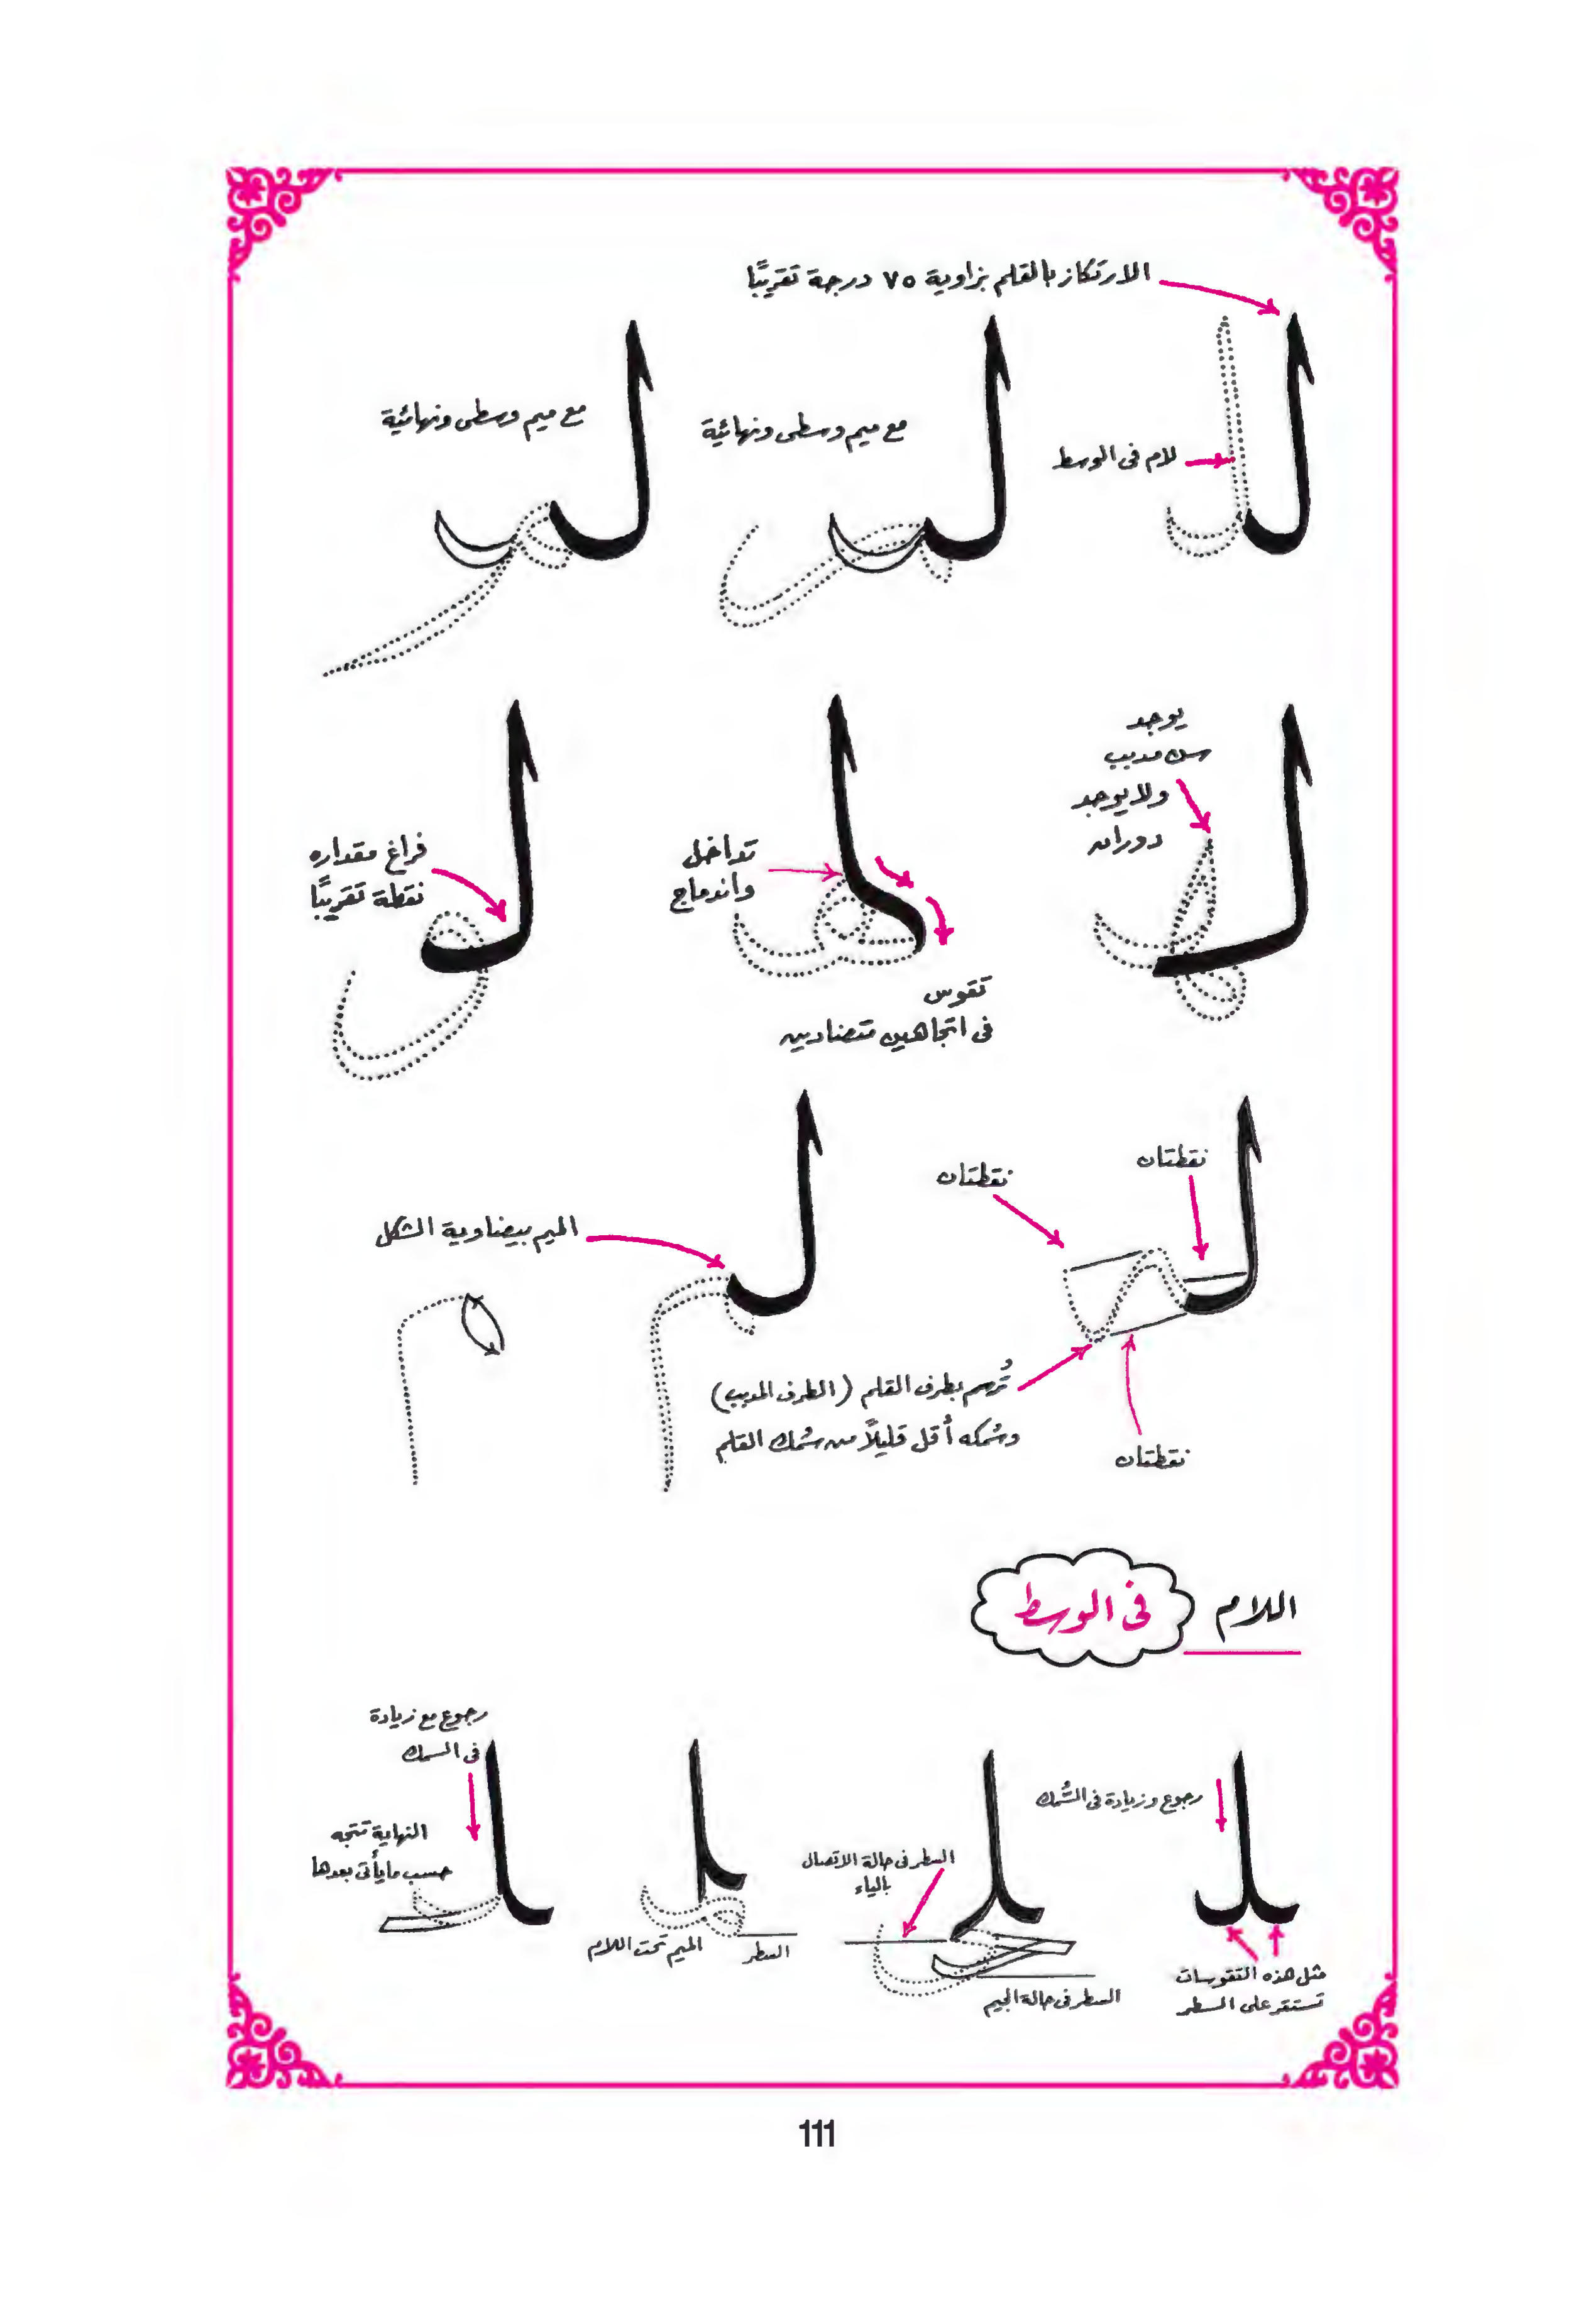 الارتكاز بالقلم بزاوية ٧٥ درجة تقريبًا
لام فى الوسط
مع ميم وسطى ونهائية
مع ميم وسطى ونهائية
يوجد
سن مدبب
ولا يوجد
دوران
تداخل
واندماج
تقوس
فى اتجاهين متضادين
فراغ مقداره
نقطة تقريبًا
نقطتان
نقطتان
نقطتان
تُرسم بطرف القلم (الطرف المدبب)
وسُمكه أقل قليلاً من سُمك القلم
الميم بيضاوية الشكل
اللام فى الوسط
رجوع وزيادة فى السُّمك
مثل هذه التقوسات
تستقر على السطر
السطر فى حالة الاتصال
بالياء
السطر فى حالة الجيم
السطر
الميم تحت اللام
رجوع مع زيادة
فى السمك
النهاية تتجه
حسب ما يأتى بعدها
111